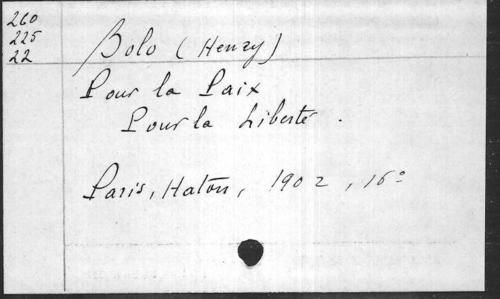 260
225
22
Bolo (Henry)
Pour la Paix
Pour la Liberté.
Paris, Haton, 1902, 16°